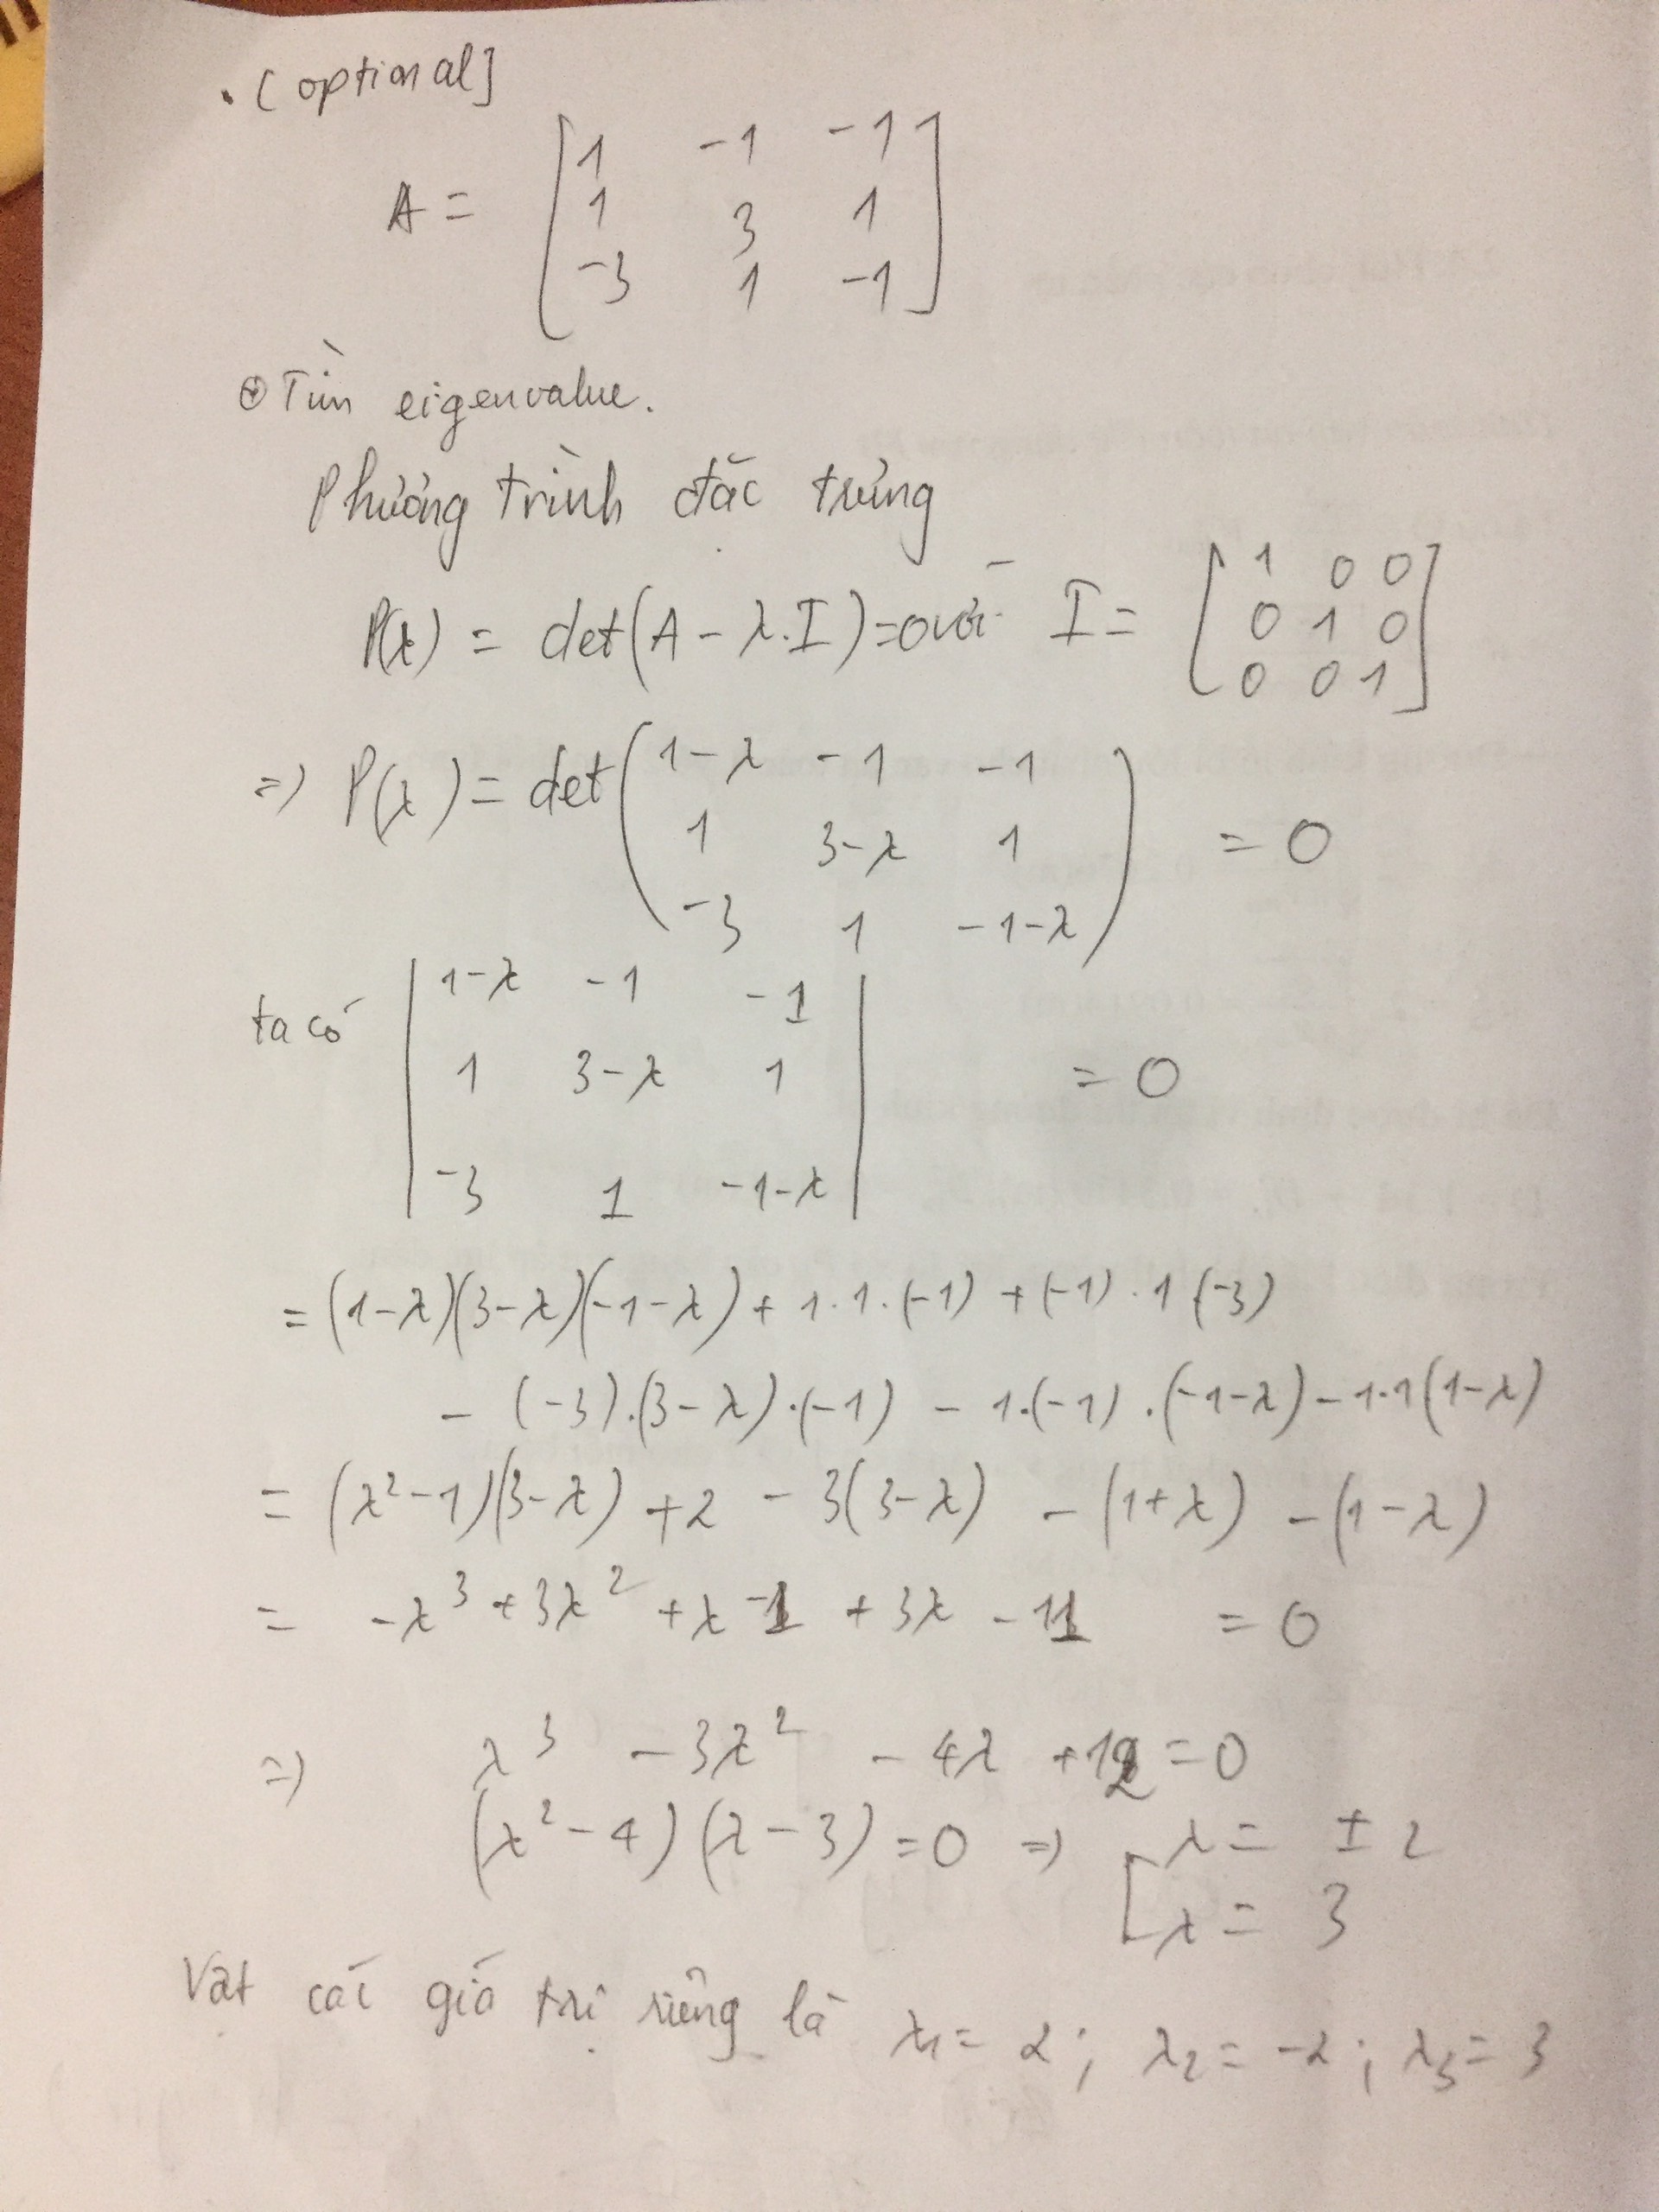 . [optional]
A = [1 -1 -1
1 3 1
-3 1 -1]
⊕ Tìm eigenvalue.
Phương trình đặc trưng
P(λ) = det(A - λ.I) = 0 với I = [1 0 0
0 1 0
0 0 1]
=> P(λ) = det(1-λ -1 -1
1 3-λ 1
-3 1 -1-λ) = 0
ta có |1-λ -1 -1|
|1 3-λ 1| = 0
|-3 1 -1-λ|
= (1-λ)(3-λ)(-1-λ) + 1.1.(-1) + (-1).1(-3)
- (-3).(3-λ).(-1) - 1.(-1).(-1-λ) - 1.1(1-λ)
= (λ²-1)(3-λ) + 2 - 3(3-λ) - (1+λ) - (1-λ)
= -λ³ + 3λ² + λ -1 + 3λ - 11 = 0
=> λ³ - 3λ² - 4λ + 12 = 0
(λ²-4)(λ-3) = 0 => [λ = ± 2
λ = 3
Vậy các giá trị riêng là λ1 = 2; λ2 = -2; λ3 = 3